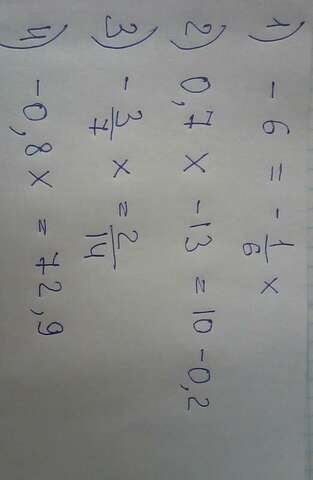 1) - 6 = - 1/6 x
2) 0,7 x - 13 = 10 - 0,2
3) - 3/7 x = 2/14
4) -0,8 x = 72,9